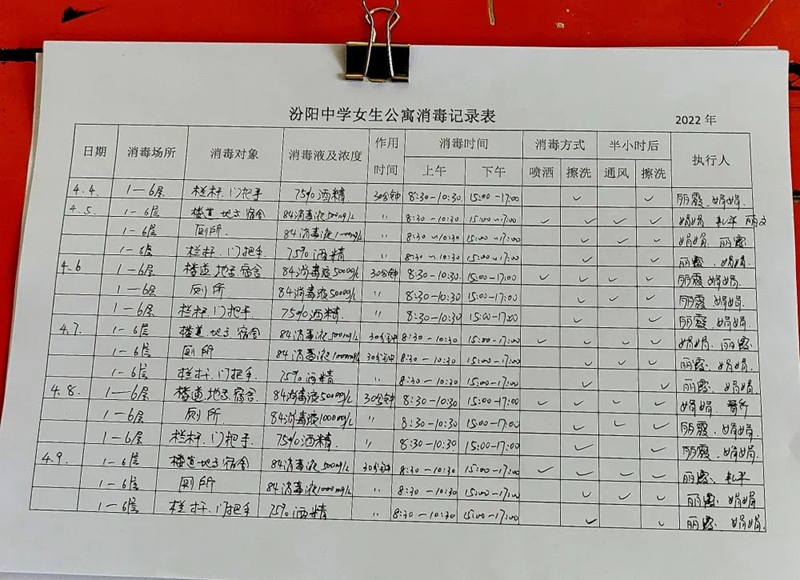 汾阳中学女生公寓消毒记录表
2022 年
日期 消毒场所 消毒对象 消毒液及浓度 作用时间 消毒时间 消毒方式 半小时后 执行人
上午 下午 喷洒 擦洗 通风 擦洗
4.4. 1—6层 栏杆、门把手 75%酒精 30分钟 8:30-10:30 15:00-17:00 ✓ ✓ 丽霞、娟娟
4.5 1-6层 楼道 地面 宿舍 84消毒液500mg/L 〃 8:30-10:30 15:00-17:00 ✓ ✓ ✓ ✓ 娟娟
1-6层 厕所 84消毒液1000mg/L 〃 8:30-10:30 15:00-17:00 ✓ ✓ ✓ 娟娟、丽霞
1-6层 栏杆、门把手 75%酒精 〃 8:30-10:30 15:00-17:00 ✓ ✓ 丽霞、娟娟
4.6 1-6层 楼道 地面 宿舍 84消毒液500mg/L 30分钟 8:30-10:30 15:00-17:00 ✓ ✓ ✓ ✓ 丽霞 娟娟
1-6层 厕所 84消毒液5000mg/L 〃 8:30-10:30 15:00-17:00 ✓ ✓ ✓ 丽霞 娟娟
1-6层 栏杆、门把手 75%酒精 〃 8:30-10:30 15:00-17:00 ✓ ✓ 丽霞、娟娟
4.7. 1-6层 楼道 地面 宿舍 84消毒液500mg/L 30分钟 8:30-10:30 15:00-17:00 ✓ ✓ ✓ ✓ 娟娟、丽霞
1-6层 厕所 84消毒液1000mg/L 30分钟 8:30-10:30 15:00-17:00 ✓ ✓ ✓ 丽霞、娟娟
1-6层 栏杆、门把手 75%酒精 〃 8:30-10:30 15:00-17:00 ✓ ✓ 丽霞、娟娟
4.8. 1-6层 楼道 地面 宿舍 84消毒液500mg/L 30分钟 8:30-10:30 15:00-17:00 ✓ ✓ ✓ ✓ 娟娟
1-6层 厕所 84消毒液1000mg/L 〃 8:30-10:30 15:00-17:00 ✓ ✓ ✓ 丽霞、娟娟
1-6层 栏杆、门把手 75%酒精 〃 8:30-10:30 15:00-17:00 ✓ ✓ 丽霞、娟娟
4.9. 1-6层 楼道 地面 宿舍 84消毒液500mg/L 30分钟 8:30-10:30 15:00-17:00 ✓ ✓ ✓ ✓ 丽霞、
1-6层 厕所 84消毒液1000mg/L 〃 8:30-10:30 15:00-17:00 ✓ ✓ ✓ 丽霞、娟娟
1-6层 栏杆、门把手 75%酒精 〃 8:30-10:30 15:00-17:00 ✓ ✓ 丽霞、娟娟